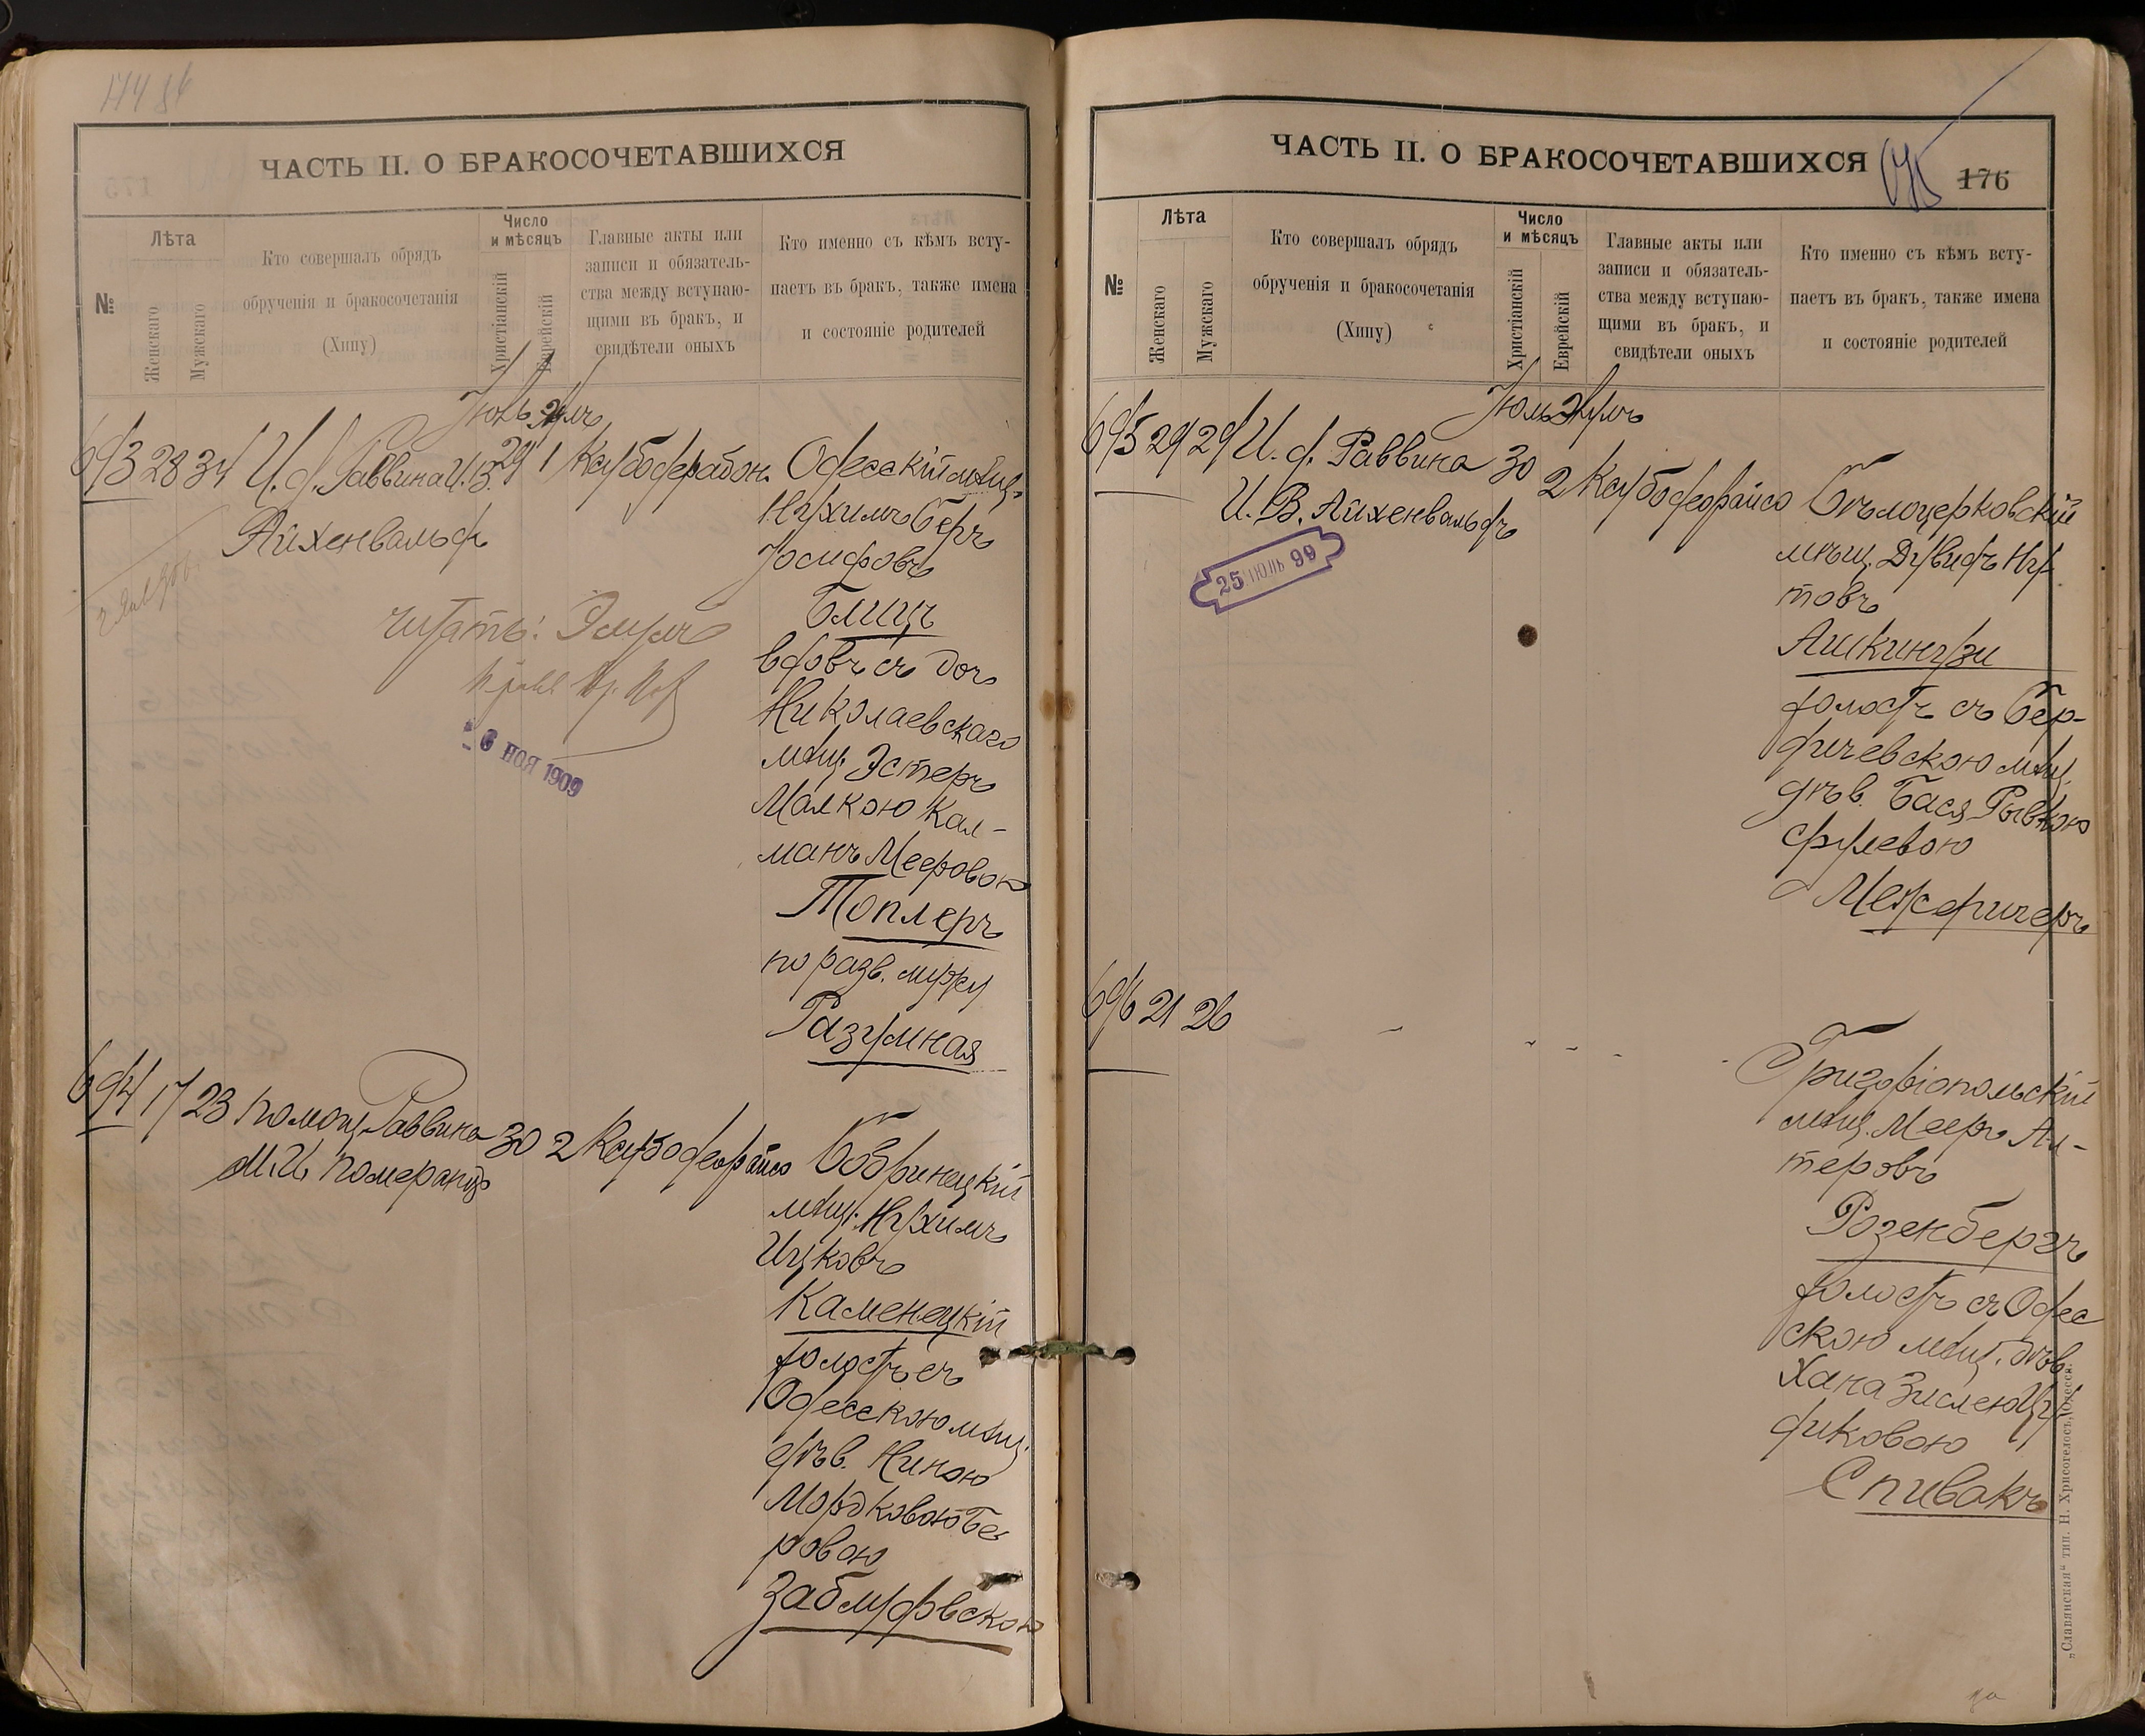 ЧАСТЬ II. О БРАКОСОЧЕТАВШИХСЯ
№
Лѣта
Женскаго
Мужскаго
Кто совершалъ обрядъ
обрученія и бракосочетанія
(Хипу)
Число
и мѣсяцъ
Христіанскій
Еврейскій
Главные акты или
записи и обязатель-
ства между вступаю-
щими въ бракъ, и
свидѣтели оныхъ
Кто именно съ кѣмъ всту-
паетъ въ бракъ, также имена
и состояніе родителей
693 28 34 И. д. Раввина И. В. 29 1
Айхенвальд
Одесскій мѣщ.
Нухимъ Беръ
Іосифовъ
Блицъ
вдовъ съ доч.
Николаевскаго
мѣщ. Эстеръ
Малкою Кал-
манъ Мееровою
Топлеръ
по разв. мужу
Разумная
читать:
6 НОЯ 1909
694 17 23 Помощ. Раввина 30 2
М. И. Померанцъ
Бобринецкій
мѣщ. Нухимъ
Ицковъ
Каменецкій
холостъ съ
Одесскою мѣщ.
дѣв. Ниною
Мордковою Бе-
ровою
Заблудовскою
ЧАСТЬ II. О БРАКОСОЧЕТАВШИХСЯ
176
№
Лѣта
Женскаго
Мужскаго
Кто совершалъ обрядъ
обрученія и бракосочетанія
(Хипу)
Число
и мѣсяцъ
Христіанскій
Еврейскій
Главные акты или
записи и обязатель-
ства между вступаю-
щими въ бракъ, и
свидѣтели оныхъ
Кто именно съ кѣмъ всту-
паетъ въ бракъ, также имена
и состояніе родителей
695 29 29 И. д. Раввина 30 2
И. В. Айхенвальдъ
25 ІЮЛЬ 99
Бѣлоцерковскій
мѣщ. Дувидъ Ну-
товъ
Ашкинази
холостъ съ Бер-
дичевскою мѣщ.
дѣв. Бася Рывкою
Сруlевою
Межеричеръ
696 21 26
Григоріопольскій
мѣщ. Мееръ Ал-
теровъ
Розенбергъ
холостъ съ Одес
скою мѣщ. дѣв.
Хана Зислею
диковою
Спивакъ
„Славянская“ тип. Н. Хрисогелосъ, Одесса.